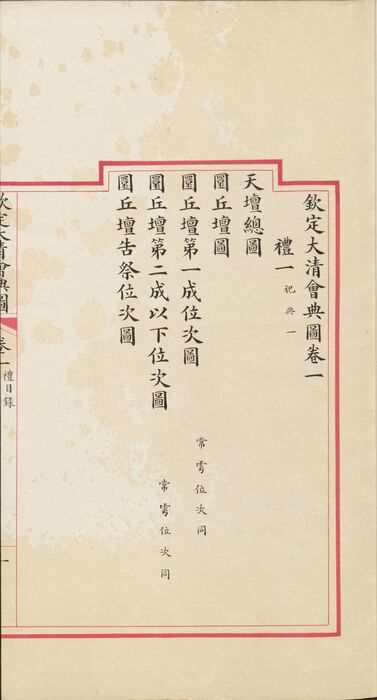 欽定大清會典圖卷一
禮一 祀典一
天壇總圖
圜丘壇圖
圜丘壇第一成位次圖 常雩位次同
圜丘壇第二成以下位次圖 常雩位次同
圜丘壇告祭位次圖
欽定大清會典圖 卷一 禮目錄 一